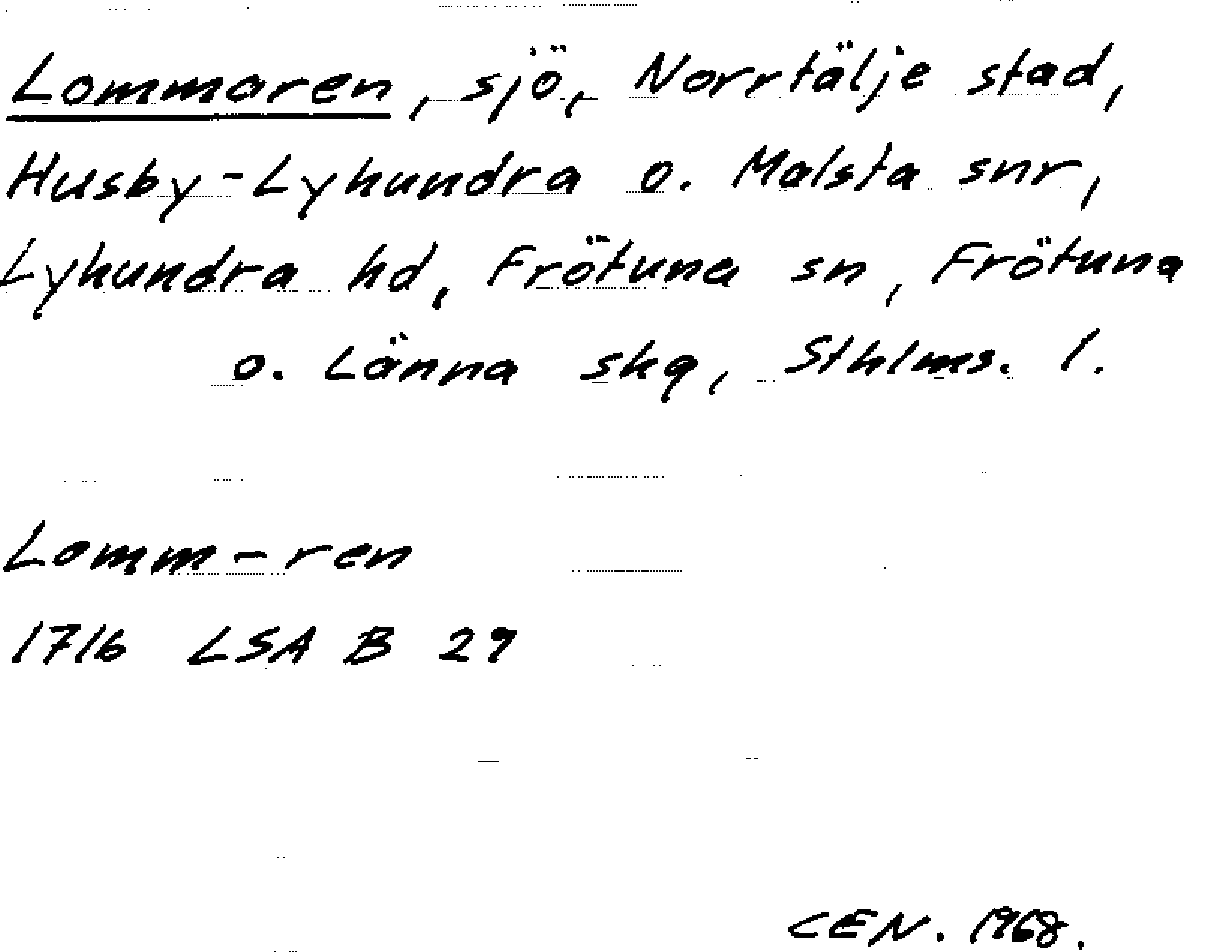 Lommaren, sjö, Norrtälje stad,
Husby-Lyhundra o. Malsta snr,
Lyhundra hd, Frötuna sn, Frötuna
o. Länna skg, Sthlms. l.
Lomm-ren
1716 LSA B 29
CEN. 1968.